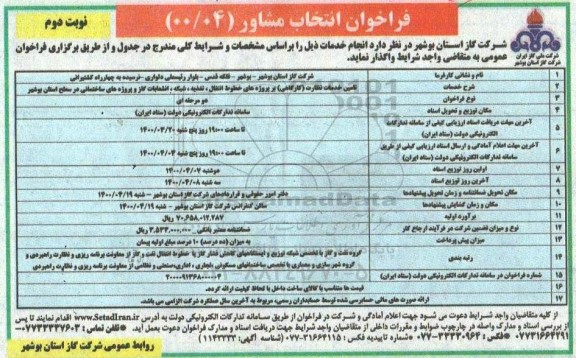 فراخوان انتخاب مشاور (۰۰/۰۴)
نوبت دوم
شرکت ملی گاز ایران
شرکت گاز استان بوشهر
شرکت گاز استان بوشهر در نظر دارد انجام خدمات ذیل را براساس مشخصات و شرایط کلی مندرج در جدول و از طریق برگزاری فراخوان
عمومی به متقاضی واجد شرایط واگذار نماید.
۱ نام و نشانی کارفرما شرکت گاز استان بوشهر - بوشهر - فلکه قدس - بلوار رئیسعلی دلواری - نرسیده به چهارراه کشتیرانی
۲ شرح خدمات تامین خدمات نظارت (کارگاهی) بر پروژه های خطوط انتقال ، تغذیه ، شبکه ، انشعابات گاز و پروژه های ساختمانی در سطح استان بوشهر
۳ نوع فراخوان دو مرحله ای
۴ مکان توزیع و تحویل اسناد سامانه تدارکات الکترونیکی دولت (ستاد ایران)
۵ آخرین مهلت دریافت اسناد ارزیابی کیفی از سامانه تدارکات
الکترونیکی دولت (ستاد ایران) تا ساعت ۱۹:۰۰ روز پنج شنبه ۱۴۰۰/۰۳/۲۰
۶ آخرین مهلت اعلام آمادگی و ارسال اسناد ارزیابی کیفی از طریق
سامانه تدارکات الکترونیکی دولت (ستاد ایران) تا ساعت ۱۹:۰۰ روز پنج شنبه
۷ اولین روز توزیع اسناد دوشنبه ۱۴۰۰/۰۴/۰۷
۸ آخرین روز توزیع اسناد سه شنبه ۱۴۰۰/۰۴/۰۸
۹ مکان تحویل ضمانتنامه و زمان تحویل پیشنهادها دفتر امور حقوقی و قراردادهای شرکت گاز استان بوشهر - شنبه ۱۴۰۰/۰۴/۱۹
۱۰ مکان و زمان گشایش پیشنهادها سالن کنفرانس شرکت گاز استان بوشهر - شنبه ۱۴۰۰/۰۴/۱۹
۱۱ برآورد اولیه ۷۰,۶۵۸,۰۱۲,۲۸۷ ریال
۱۲ نوع و میزان تضمین شرکت در فرآیند ارجاع کار ضمانتنامه معتبر بانکی ۳,۵۳۳,۰۰۰,۰۰۰ ریال
۱۳ میزان پیش پرداخت به میزان (ده درصد) ۱۰ درصد مبلغ اولیه پیمان
۱۴ رتبه بندی گروه نفت و گاز با تخصص شبکه توزیع و ایستگاههای کاهش فشار گاز یا خطوط انتقال نفت و گاز از معاونت برنامه ریزی و نظارت راهبردی و
گروه شهرسازی و معماری با تخصص ساختمانهای مسکونی ،تجاری ، اداری،صنعتی و نظامی از معاونت برنامه ریزی و نظارت راهبردی
۱۵ شماره فراخوان در سامانه تدارکات الکترونیکی دولت (ستاد ایران)
۱۶ قیمت ها متناسب با کالای ساخت داخل با لحاظ کیفیت ارائه گردد.
۱۷ ارائه صورت های مالی حسابرسی شده توسط حسابداران رسمی، مربوط به آخرین سال عملکرد شرکت الزامی می باشد.
از کلیه متقاضیان واجد شرایط دعوت می شود جهت اعلام آمادگی و شرکت در فراخوان از طریق سامانه تدارکات الکترونیکی دولت به آدرس www.SetadIran.ir اقدام نمایند تا پس
از بررسی اسناد و مدارک واصله در چارچوب ضوابط و مقررات داخلی از متقاضیان واجد شرایط جهت دریافت اسناد و مدارک فراخوان دعوت بعمل آید.
روابط عمومی شرکت گاز استان بوشهر